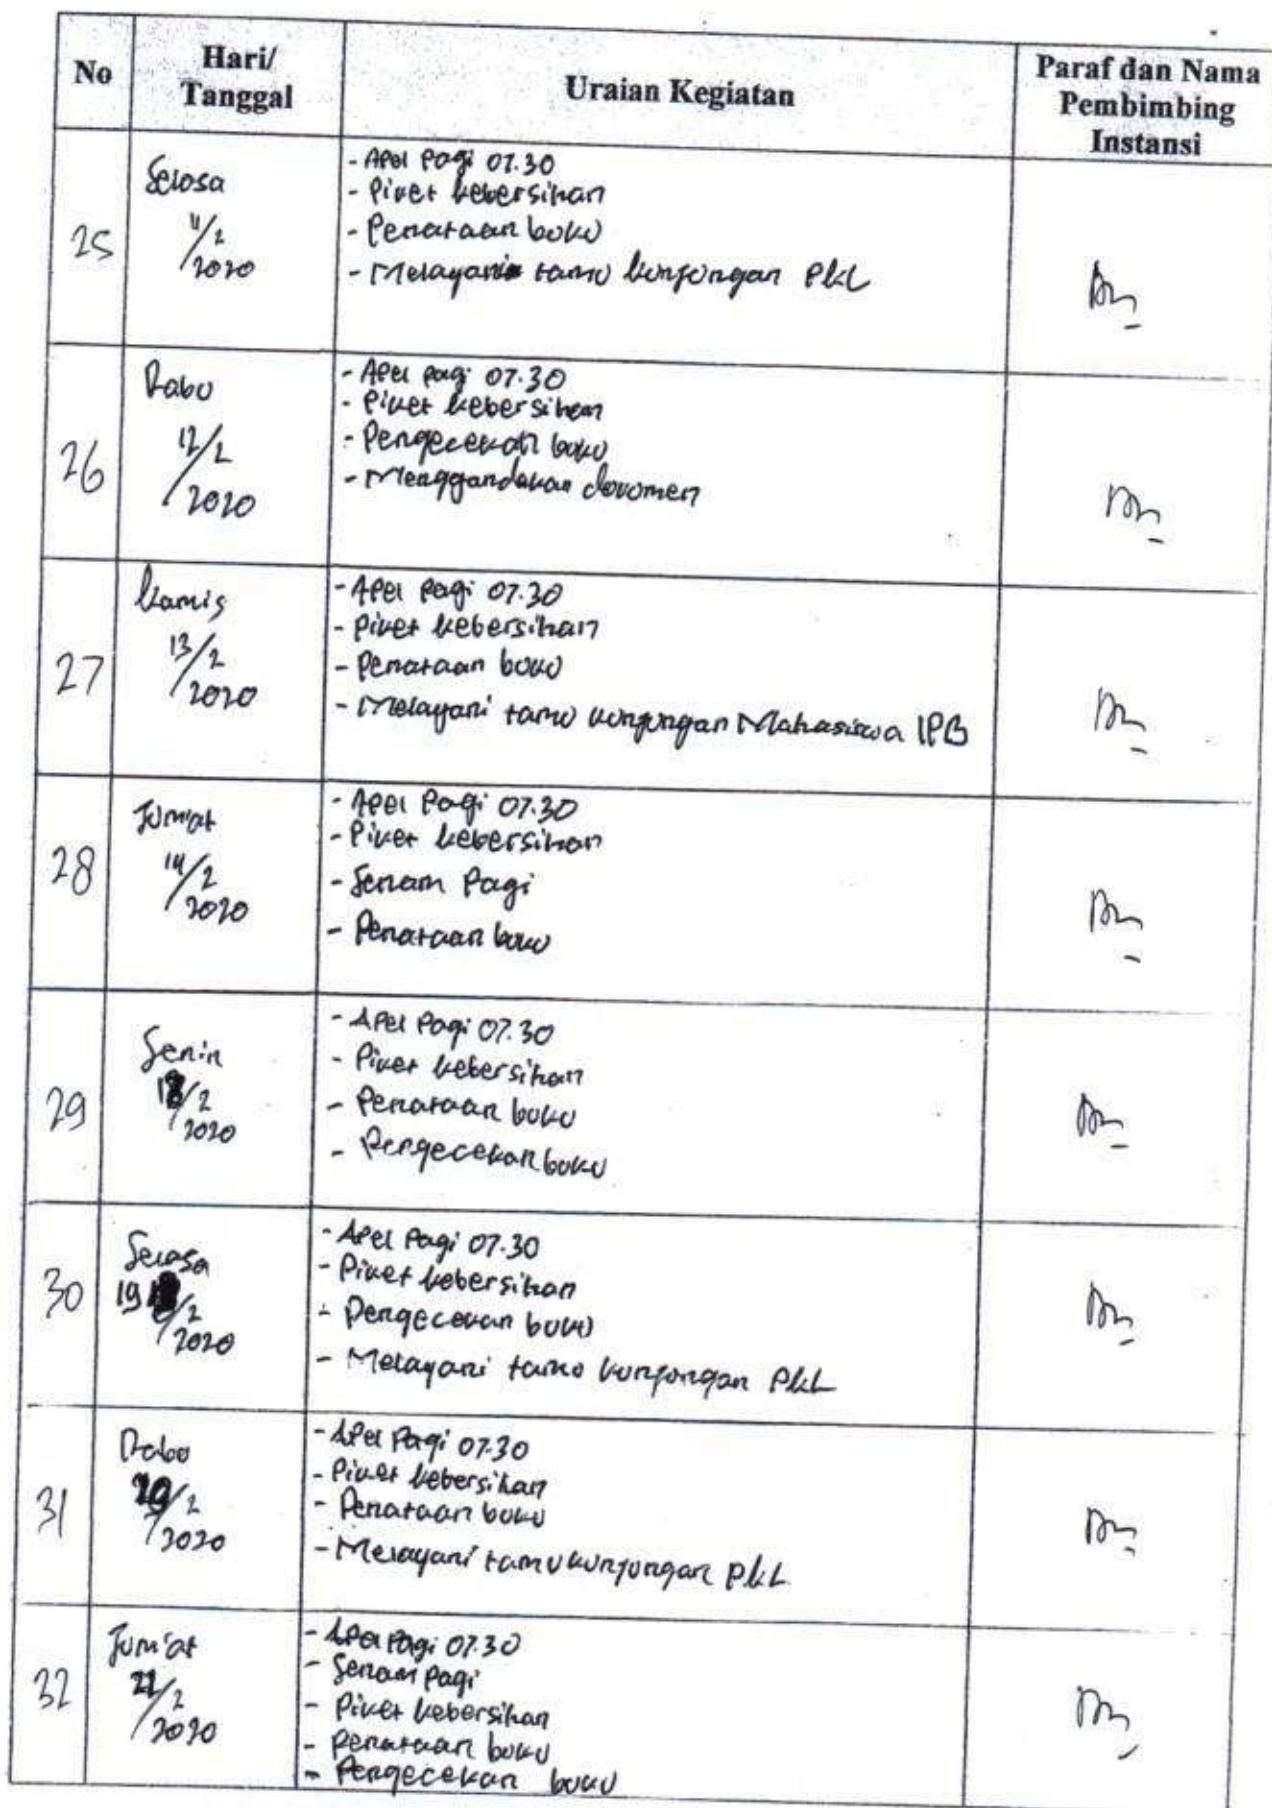 No
Hari/
Tanggal
Uraian Kegiatan
Paraf dan Nama
Pembimbing
Instansi
25
Selasa
11/2
2020
- Apel Pagi 07.30
- Piket kebersihan
- Penataan buku
- Melayani tamu kunjungan PkL
26
Rabu
12/2
2020
- Apel pagi 07.30
- Piket kebersihan
- Pengecekan buku
- Menggandakan dokumen
27
Kamis
13/2
2020
- Apel pagi 07.30
- Piket kebersihan
- Penataan buku
- Melayani tamu kunjungan Mahasiswa IPB
28
Jum'at
14/2
2020
- Apel Pagi 07.30
- Piket kebersihan
- Senam Pagi
- Penataan buku
29
Senin
18/2
2020
- Apel Pagi 07.30
- Piket kebersihan
- Penataan buku
- Pengecekan buku
30
Selasa
19/2
2020
- Apel Pagi 07.30
- Piket kebersihan
- Pengecekan buku
- Melayani tamu kunjungan PkL
31
Rabu
20/2
2020
- Apel Pagi 07.30
- Piket kebersihan
- Penataan buku
- Melayani tamu kunjungan PkL
32
Jum'at
21/2
2020
- Apel Pagi 07.30
- Senam pagi
- Piket kebersihan
- penataan buku
- Pengecekan buku